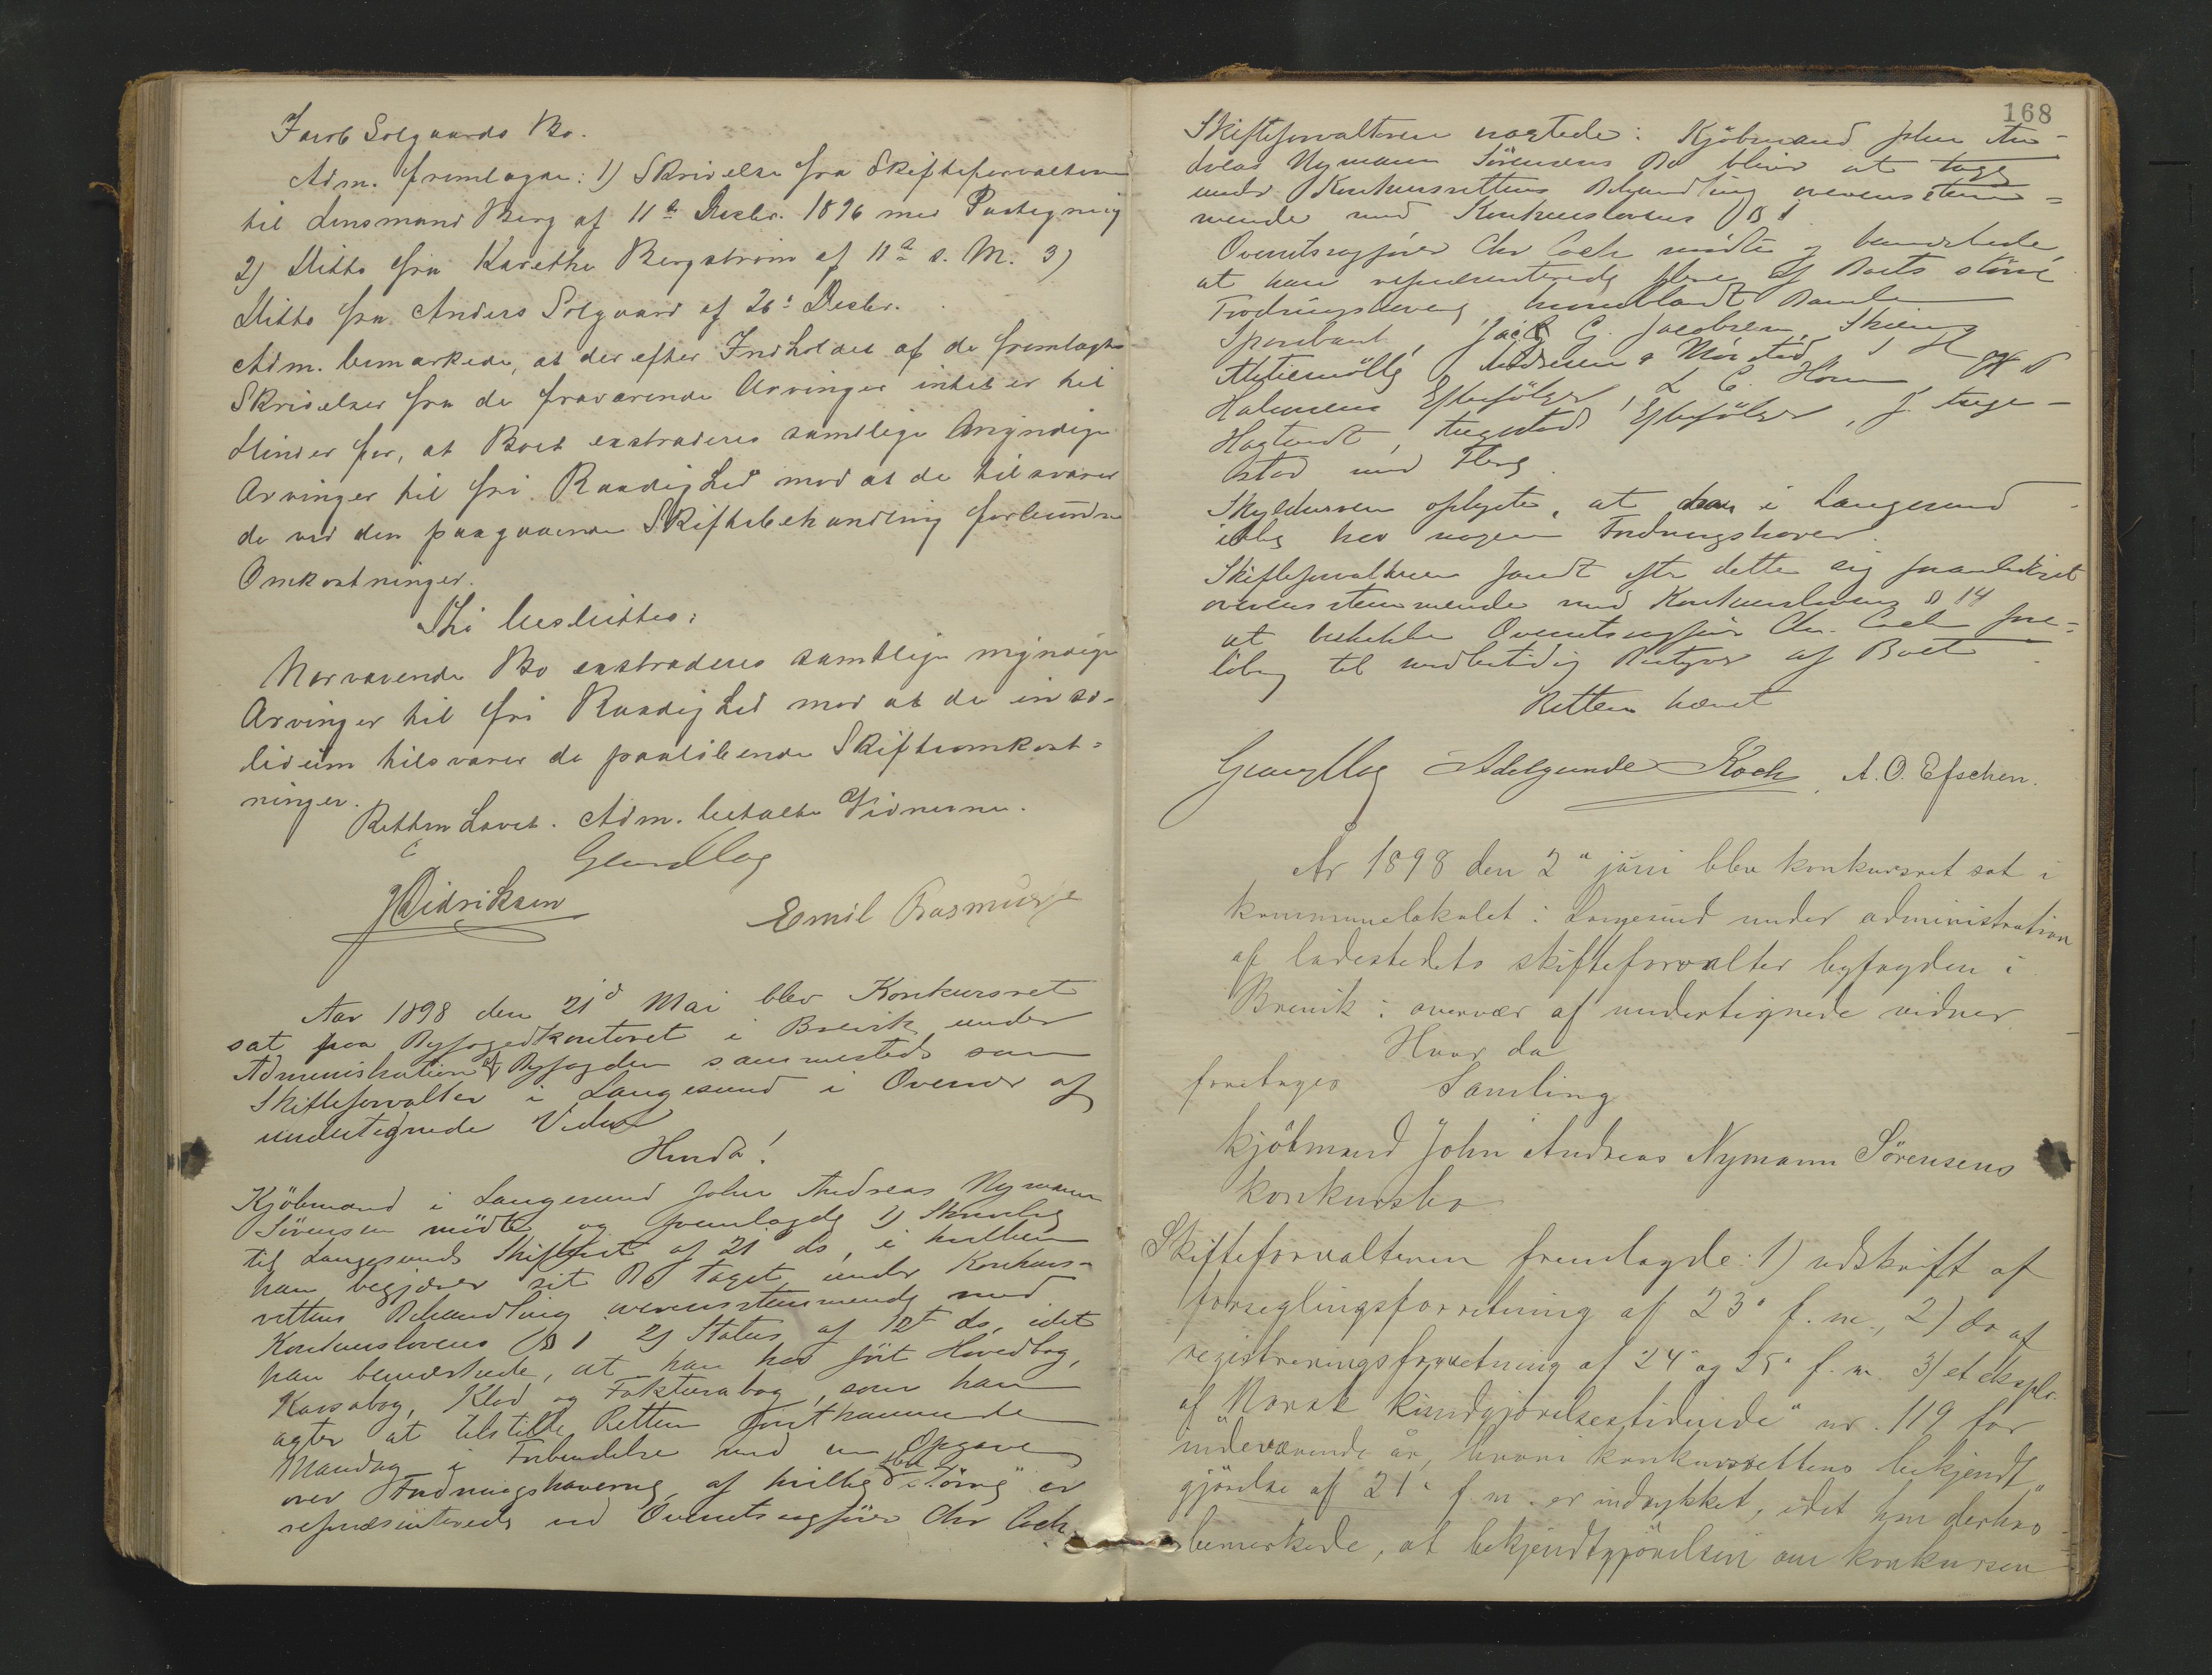 Jacob Solgaards Bo.
Adm. fremlagde: 1) Skrivelse fra Skifteforvalteren
til Lensmand Berg af 11te Decbr. 1896 med Paategning
2) Ditto fra Karethe Bergstrøm af 11te s. M. 3)
Ditto fra Anders Solgaard af 26de Decbr.
Adm. bemærkede, at der efter Indholdet af de fremlagte
Skrivelser fra de fraværende Arvinger intet er til
Hinder for, at Boet extraderes samtlige myndige
Arvinger til fri Raadighed mod at de tilsvarer
de ved den paagaaende Skiftebehandling forbundne
Omkostninger.
Thi besluttes:
Nærværende Bo extraderes samtlige myndige
Arvinger til fri Raadighed mod at de in so-
lidum tilsvarer de paaløbende Skifteomkost=
ninger.
Retten hævet. Adm. betalte Vidnerne.
HDidriksen
Emil Rasmussen
Aar 1898 den 21de Mai blev Konkursret
sat paa Byfogedkontoret i Brevik under
Administration af Byfogden sammesteds som
Skifteforvalter i Langesund i Overvær af
undertegnede Vidner
Hvorda!
Kjöbmand i Langesund John Andreas Nymann
Sörensen mödte og fremlagde 1) Skrivelse
til Langesunds Skifteret af 21 ds, i hvilken
han begjærer sit Bo taget under Konkurs-
rettens Behandling overensstemmende med
Konkurslovens § 1 2) Status af 12te ds, idet
han bemærkede, at han har fört Hovedbog,
Kassabog, Klad og Fakturabog, som han
agter at tilstille Retten förstkommende
Mandag i Forbindelse med en Opgave
over Fordringshaverne, af hvilke flere större er
repræsenterede ved Overretssagförer Chr Coch.
168
Skifteforvalteren vragtede: Kjöbmand John An-
dreas Nymann Sörensens Bo bliver at tage
under Konkursrettens Behandling overensstem=
mende med Konkurslovens § 1
Overretssagförer Chr Coch mödte og bemærkede,
at han repræsenterede flere af Boets större
Fordringshavere, hvoriblandt Bamle
Sparebank, Jacob C. Jacobsen, Skiens
Aktiemölle, Andresen & Mörstad,
Halvorsens Efterfölger, L C. Horn
Hogtvedt, Aagestad Efterfölger, J. Auge-
stad med Flere.
Skyldneren oplyste, at han i Langesund
ikke har nogen Fordringshaver.
Skifteforvalteren fandt efter dette sig foranlediget
overensstemmende med Konkurslovens § 14
at beskikke Overretssagförer Chr. Coch fore=
löbig til midlertidig Bestyrer af Boet
Retten hævet
Adelgunde Koch, A. O. Efschen.
År 1898 den 2den juni blev konkursret sat i
kommunelokalet i Langesund under administration
af ladestedets skifteforvalter byfogden i
Brevik i overvær af undertegnede vidner
Hvor da
foretages Samling
Kjöbmand John Andreas Nymann Sörensens
konkursbo
Skifteforvalteren fremlagde: 1) udskrift af
forseglingsforretning af 23de f. m., 2) do af
registreringsforretning af 24de og 25de f. m. 3) et ekspl.
af "Norsk kundgjörelsestidende" nr. 119 for
indeværende år, hvori konkursrettens bekjendt
gjörelse af 21de f. m. er indrykket, idet han derhos
bemerkede, at bekjendtgjörelsen om konkursen